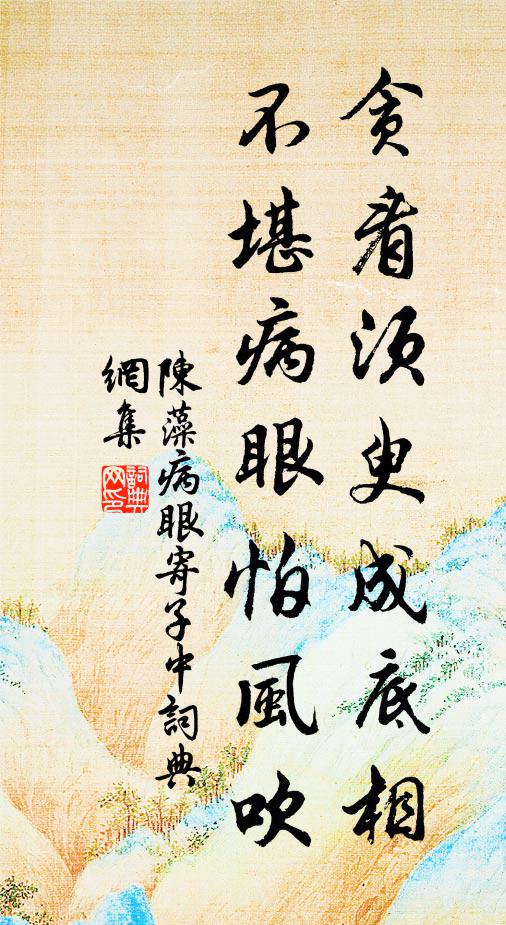 貪看須臾成底相
不堪病眼怕風吹
陳藻病眼寄子中詞典
網集
詞典網印